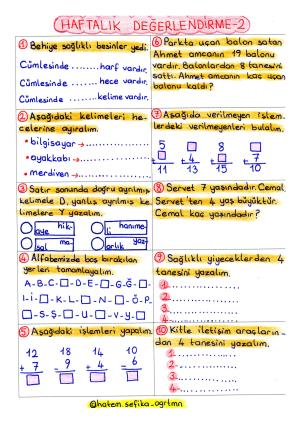 HAFTALIK DEĞERLENDİRME-2
① Behiye sağlıklı besinler yedi.
Cümlesinde ........harf vardır.
Cümlesinde .........hece vardır.
Cümlesinde .........kelime vardır.
② Aşağıdaki kelimeleri he-
celerine ayıralım.
• bilgisayar →
• ayakkabı →
• merdiven →
③ Satır sonunda doğru ayrılmış
kelimele D, yanlış ayrılmış ke
limelere Y yazalım.
hik-
aye
hanıme-
li
ma
sal
yaz-
arlık
④ Alfabemizde boş bırakılan
yerleri tamamlayalım.
A-B-C-□-D-E-□-G-Ğ-□-
I-İ-□-K-L-□-N-□-Ö-P-
□-S-Ş-□-U-□-V-Y-□
⑤ Aşağıdaki işlemleri yapalım.
12 18 14 10
+ 7 - 9 + 4 - 6
⑥ Parkta uçan balon satan
Ahmet amcanın 19 balonu
vardır. Balonlardan 8 tanesini
sattı. Ahmet amcanın kaç uçan
balonu kaldı?
⑦ Aşağıda verilmeyen işlem-
lerdeki verilmeyenleri bulalım.
5 □ 8 □
+ □ + 4 + □ + 7
11 13 15 10
⑧ Servet 7 yaşındadır. Cemal
Servet'ten 4 yaş büyüktür.
Cemal kaç yaşındadır?
⑨ Sağlıklı yiyeceklerden 4
tanesini yazalım.
1-
2-
3-
4-
⑩ Kitle iletişim araçların-
dan 4 tanesini yazalım.
1-
2-
3-
4-
@hatem.sefika_ogrtmn